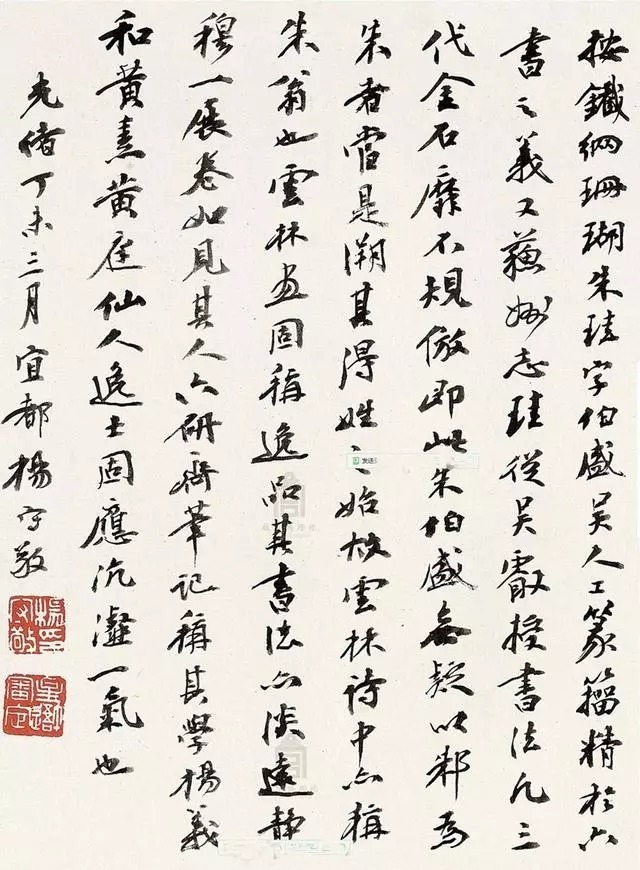 按鐵網珊瑚朱珪字伯盛吳人工篆籀精於六
書之義又蘇州志珪從吳叡授書法凡三
代金石靡不規倣即此朱伯盛無疑以邾為
朱者當是溯其得姓之始故雲林詩中亦稱
朱翁也雲林畫固稱逸品其書法亦淡遠靜
穆一展卷如見其人六研齋筆記稱其學楊羲
和黃素黃庭仙人逸士固應沆瀣一氣也
光緒丁未三月宜都楊守敬
楊印守敬
发送